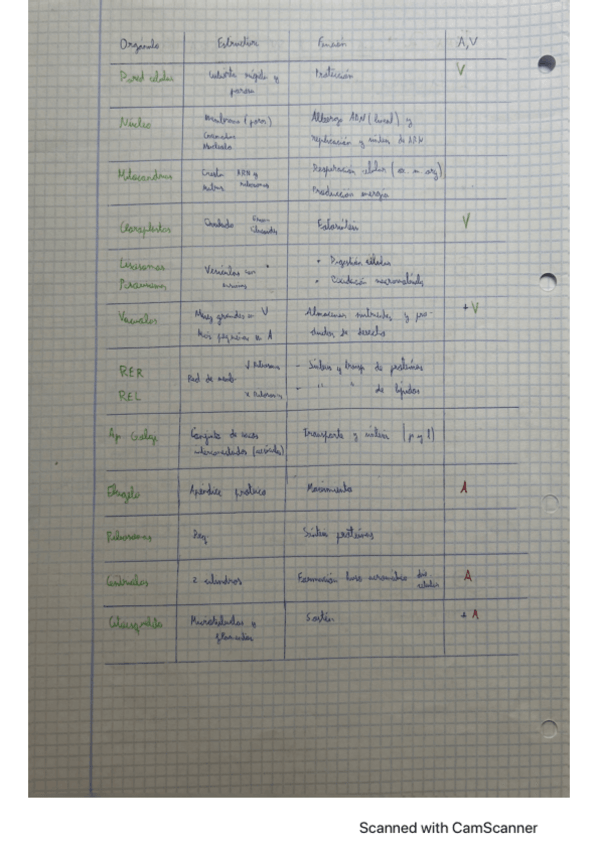 Orgánulo Estructura Función A,V
Pared celular Cubierta rígida y Protección V
porosa
Núcleo Membrana (poros) Alberga ADN (lineal) y
Cromatina replicación y síntesis de ARN
Nucleolo
Mitocondrias Crestas ADN y Respiración celular
matriz ribosomas Producción energía
Cloroplastos V
Lisosomas Vesículas con • Digestión celular
Peroxisomas •
Vacuolas Muy grandes en V Almacenan nutrientes y pro- + V
Más pequeñas en A ductos de desecho
RER Red de memb. - Síntesis y transp. de proteínas
REL - " " de lípidos
Ap. Golgi Conjunto de sacos Transporte y
interconectados
Flagelo Apéndice proteico Movimiento A
Ribosomas Síntesis proteínas
Centriolos 2 cilindros Formación huso acromático A
Citoesqueleto Microtúbulos y Sostén + A
filamentos
Scanned with CamScanner